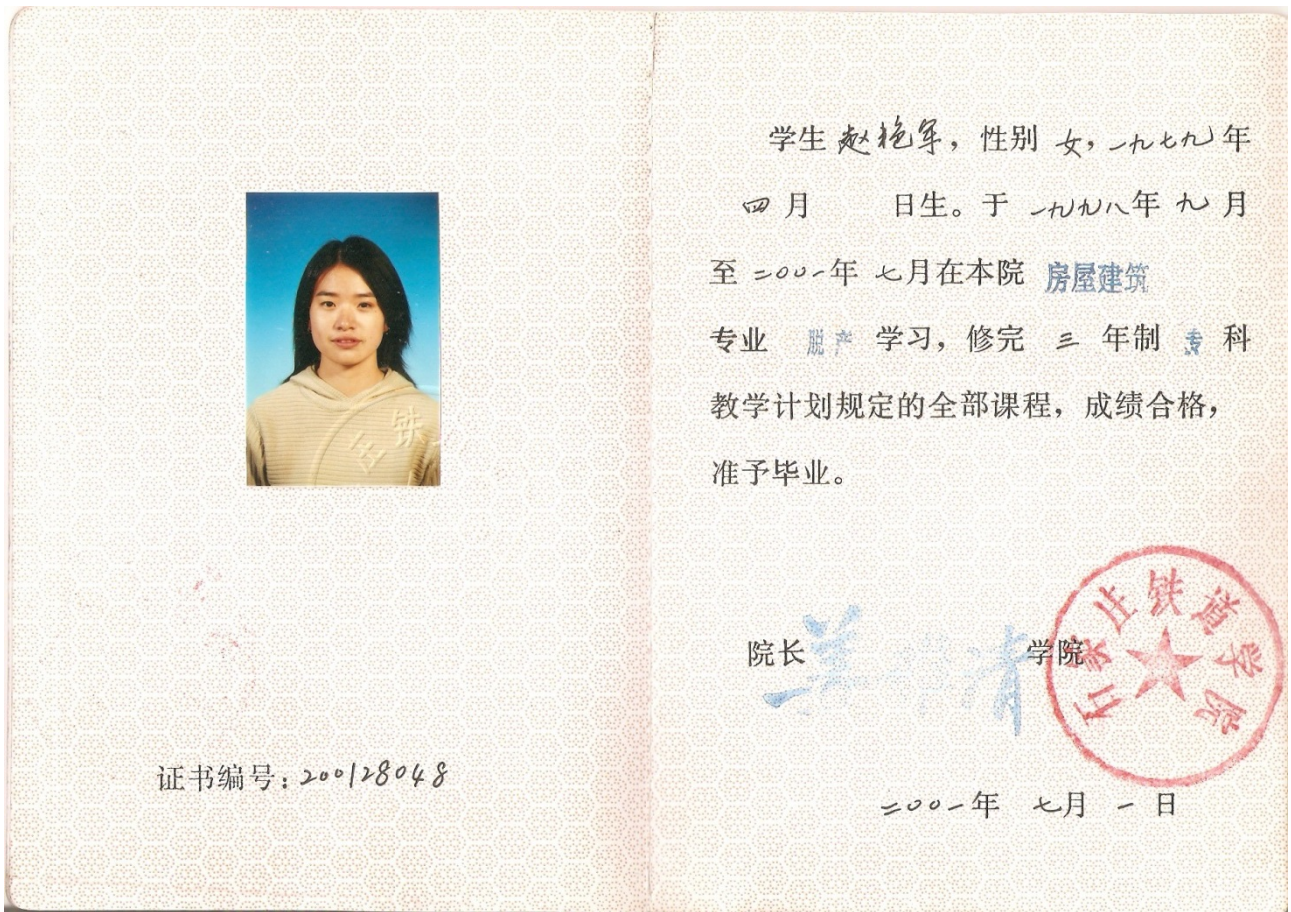 证书编号:200128048
学生 赵艳军,性别 女,一九七九年
四月 日生。于 一九九八年 九月
至 二〇〇一年 七月在本院 房屋建筑
专业 脱产 学习,修完 三 年制 专 科
教学计划规定的全部课程,成绩合格,
准予毕业。
院长 学院
石家庄铁道学院
二〇〇一年 七月 一 日